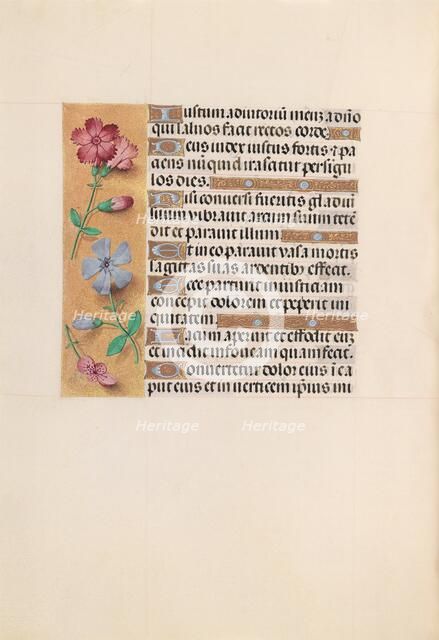 Iustum adiutoriū meuz a dn̄o
qui saluos facit rectos corde.
Deus iudex iustus fortis ⁊ pa
ciens nūquid irascitur per sigu
los dies.
Nisi conuersi fueritis gladiū
suum vibrauit arcum suum teten
dit et parauit illum.
Et in eo parauit vasa mortis
sagittas suas ardentibꝰ effecit.
Ecce parturit iniusticiam
concepit dolorem et peperit ini
quitatem.
Lacum aperuit et effodit euz
et incidit in foueam quam fecit.
Conuertetur dolor eius ī ca
put eius et in verticem ip̄ius ini
Heritage
Heritage
Heritage
Heritage
Heritage
Heritage